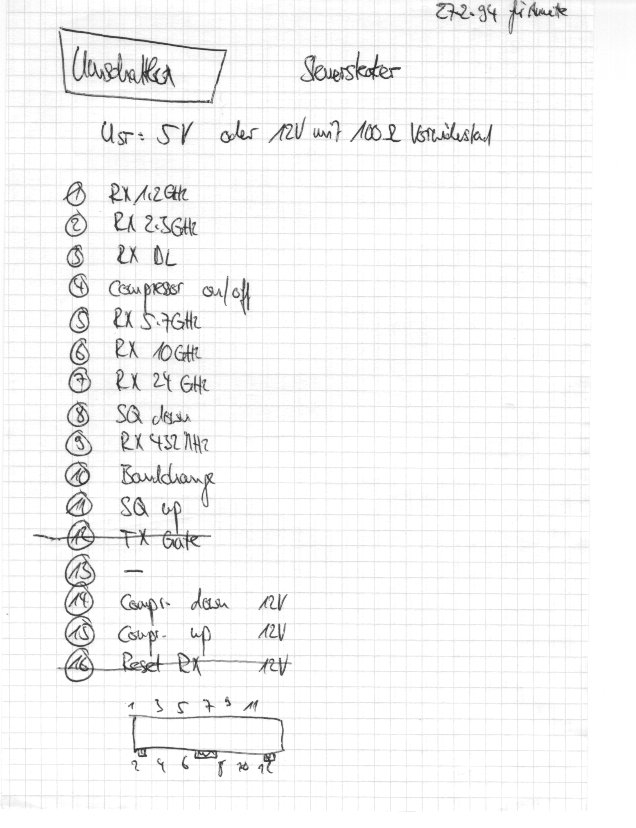 27.2.94
Umschalten Steuerstecker
UST = 5V oder 12V mit 100Ω Vorwiderstand
① RX 1.2GHz
② RX 2.3GHz
③ RX DL
④ Compressor on/off
⑤ RX 5.7GHz
⑥ RX 10GHz
⑦ RX 24 GHz
⑧ SQ down
⑨ RX 432 MHz
⑩ Bandchange
⑪ SQ up
⑫ TX Gate
⑬ —
⑭ Compr. down 12V
⑮ Compr. up 12V
⑯ Reset RX 12V
1 3 5 7 9 11
2 4 6 8 10 12